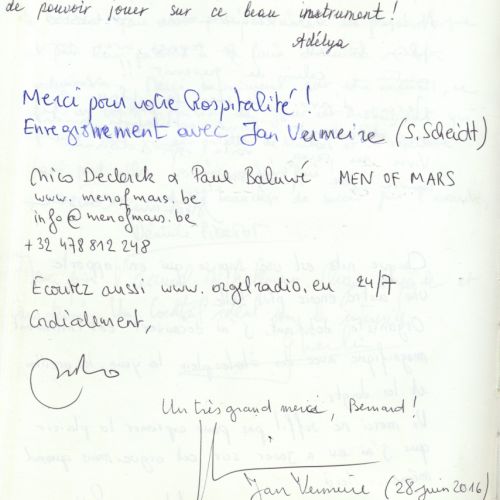 de pouvoir jouer sur ce beau instrument !
Adélya
Merci pour votre Hospitalité !
Enregistrement avec Jan Vermeire (S. Scheidt)
Chico Declerck & Paul Baluwé MEN OF MARS
www.menofmars.be
info@menofmars.be
+32 478 812 248
Ecoutez aussi www.orgelradio.eu 24/7
Cordialement,
Un très grand merci, Bernard !
Jan Vermeire (28 juin 2016)